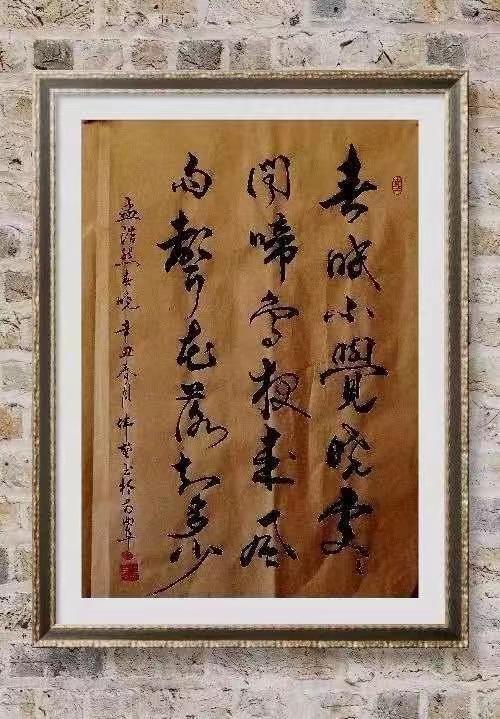 春眠不覺曉處々
聞啼鳥夜來風
雨聲花落知多少
孟浩然春曉 辛丑春月